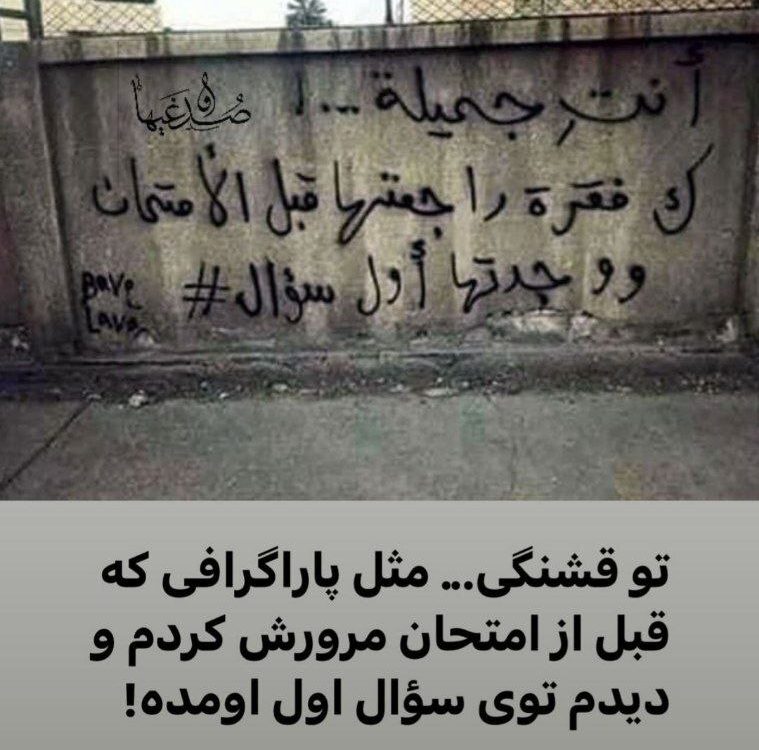 أنتِ جميلة...!
ك فقرة راجعتها قبل الأمتحان
ووجدتها أول سؤال#
صُدغيها
تو قشنگی... مثل پاراگرافی که
قبل از امتحان مرورش کردم و
دیدم توی سؤال اول اومده!